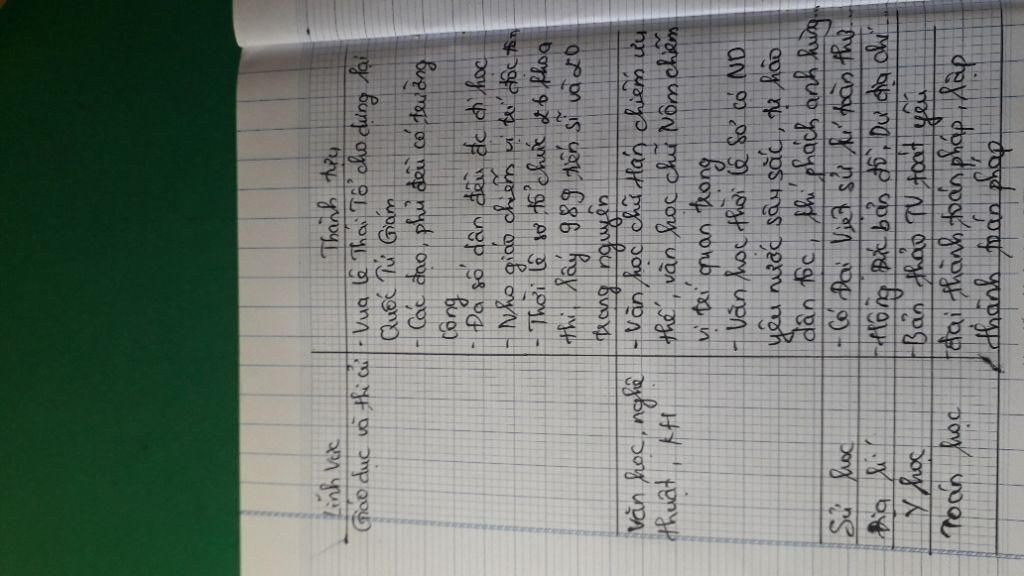 Lĩnh vực Thành tựu
Giáo dục và thi cử - Vua Lê Thái Tổ cho dựng lại
Quốc Tử Giám
- Các đạo, phủ đều có trường
công
- Đa số dân đều đc đi học
- Nho giáo chiếm vị trí độc tôn
- Thời lê sơ tổ chức 26 khoa
thi, lấy 989 tiến sĩ và 20
trạng nguyên
Văn học, nghệ - Văn học chữ Hán chiếm ưu
thuật, KH thế, văn học chữ Nôm chiếm
vị trí quan trong
- Văn học thời lê sơ có ND
yêu nước sâu sắc, tự hào
dân tộc, khí phách anh hùng...
Sử học - Có Đại Việt sử kí toàn thư...
Địa lí - Hồng Đức bản đồ, Dư địa chí...
Y học - Bản thảo TV toát yếu
Toán học Đại thành toán pháp, lập
thành toán pháp